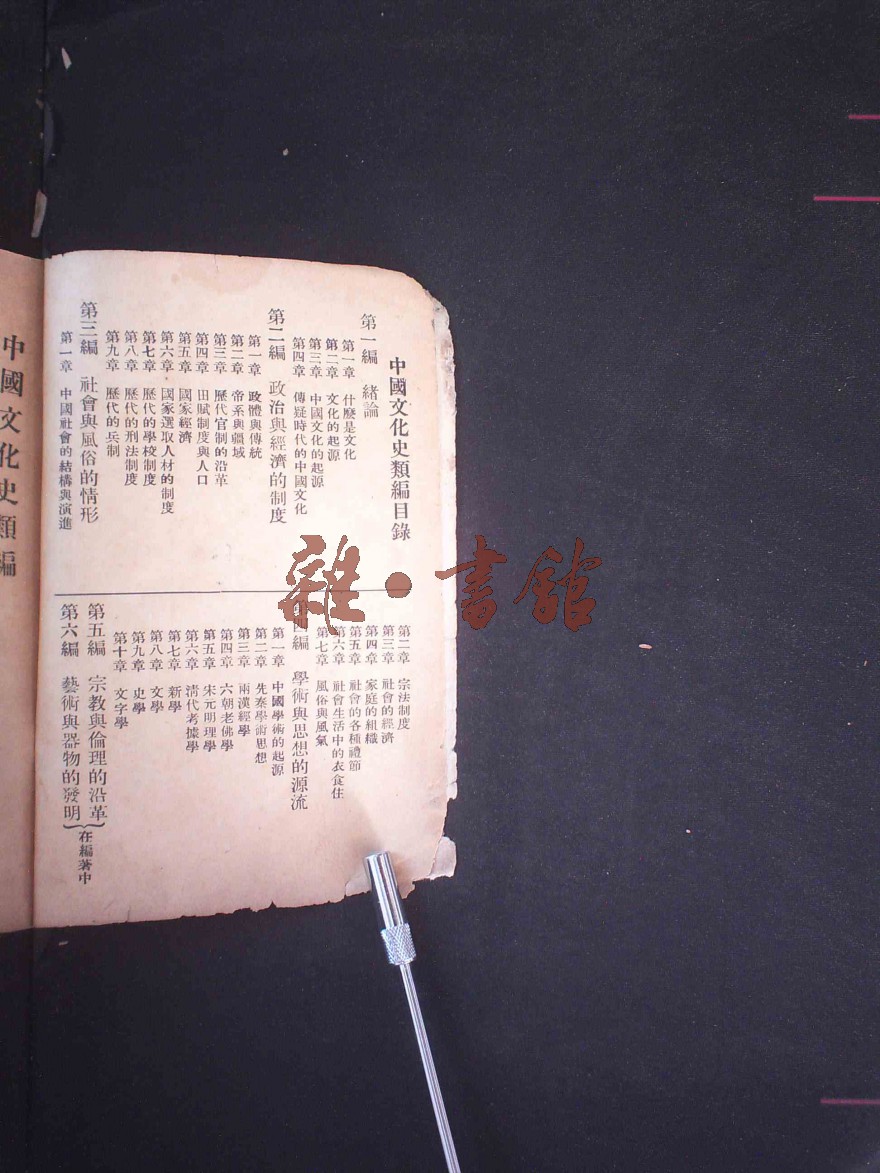 中國文化史類編目錄
第一編 緒論
第一章 什麼是文化
第二章 文化的起源
第三章 中國文化的起源
第四章 傳疑時代的中國文化
第二編 政治與經濟的制度
第一章 政體與傳統
第二章 帝系與疆域
第三章 歷代官制的沿革
第四章 田賦制度與人口
第五章 國家經濟
第六章 國家選取人材的制度
第七章 歷代的學校制度
第八章 歷代的刑法制度
第九章 歷代的兵制
第三編 社會與風俗的情形
第一章 中國社會的結構與演進
第二章 宗法制度
第三章 社會的經濟
第四章 家庭的組織
第五章 社會的各種禮節
第六章 社會生活中的衣食住
第七章 風俗與風氣
第四編 學術與思想的源流
第一章 中國學術的起源
第二章 先秦學術思想
第三章 兩漢經學
第四章 六朝老佛學
第五章 宋元明理學
第六章 清代考據學
第七章 新學
第八章 文學
第九章 史學
第十章 文字學
第五編 宗教與倫理的沿革
第六編 藝術與器物的發明
在編著中
中國文化史類編
雜·書館